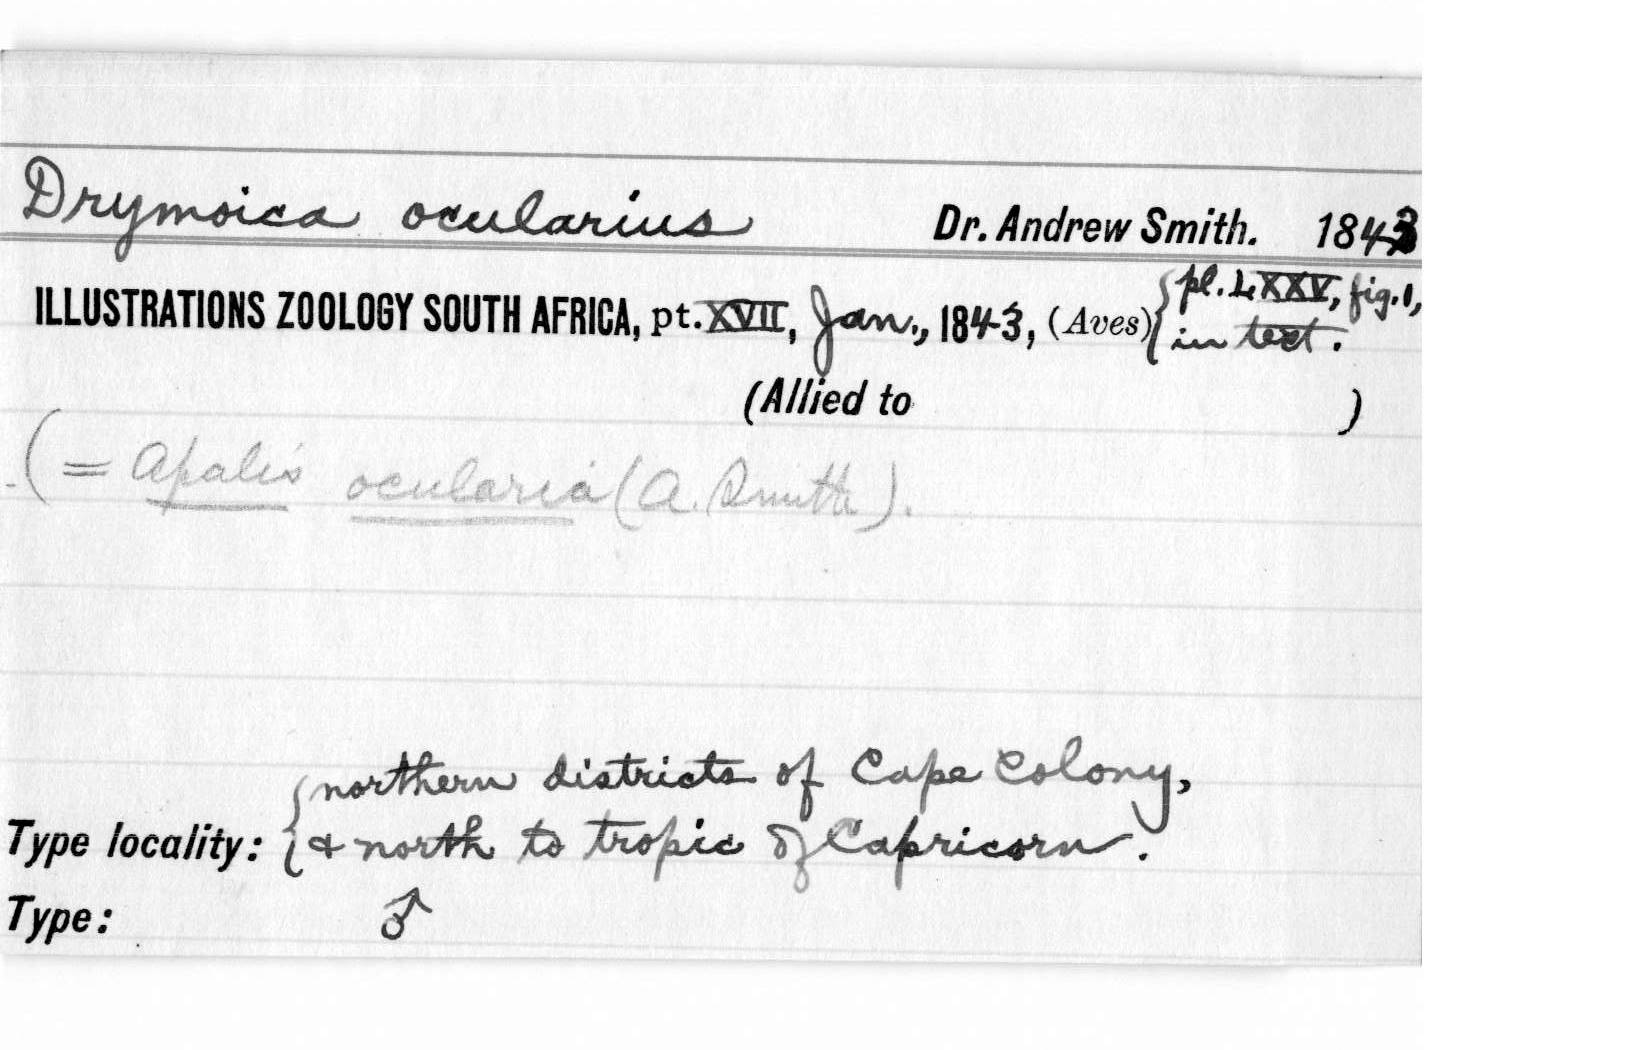 Drymoica ocularius Dr. Andrew Smith. 1843
ILLUSTRATIONS ZOOLOGY SOUTH AFRICA, pt. XVII, Jan., 1843, (Aves) { pl. LXXV, fig. 1,
in text.
(Allied to )
(= Apalis ocularia (A. Smith).
northern districts of Cape Colony,
Type locality: { & north to tropic of Capricorn.
Type: ♂